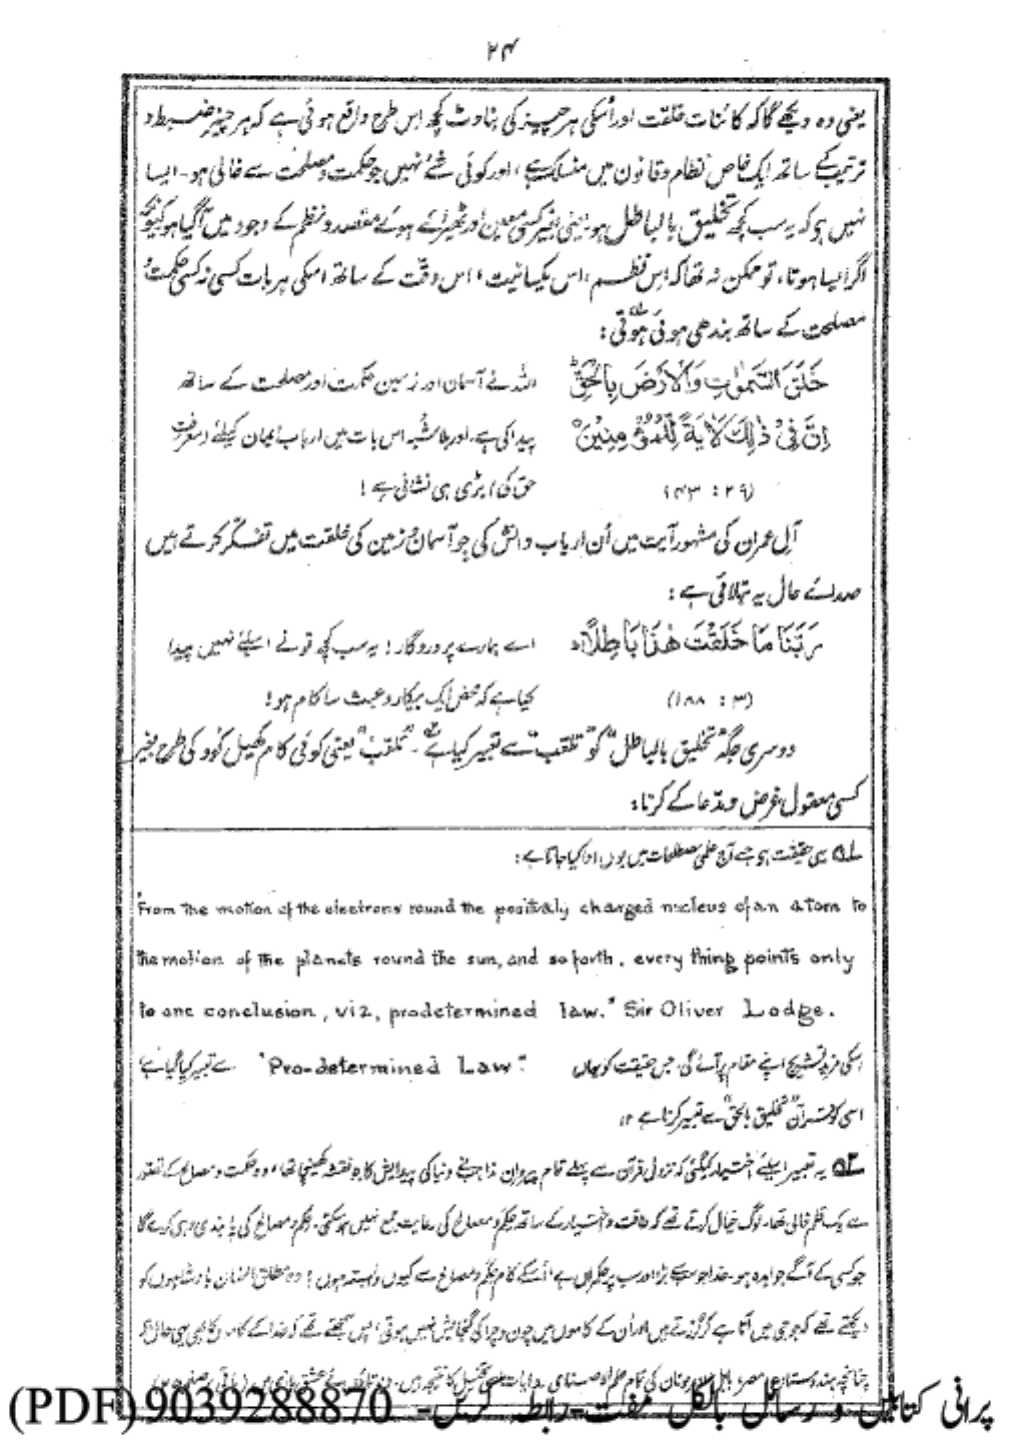 ۲۴
یعنی وہ دیکھے گا کہ کائنات خلقت اور اُسکی ہر چیز کی بناوٹ کچھ اس طرح واقع ہوئی ہے کہ ہر چیز ضبط و
ترتیب کے ساتھ ایک خاص نظام و قانون میں منسلک ہے، اور کوئی شے نہیں جو حکمت و مصلحت سے خالی ہو۔ ایسا
نہیں ہو کہ یہ سب کچھ تخلیق بالباطل ہو، یعنی بغیر کسی معین اور ٹھہرائے ہوئے مقصد و نظم کے وجود میں آگیا ہو کیونکہ
اگر ایسا ہوتا، تو ممکن نہ تھا کہ اِس نظم، اس یکسانیت، اس دقّت کے ساتھ اسکی ہر بات کسی نہ کسی حکمت و
مصلحت کے ساتھ بندھی ہوئی ہوتی:
خَلَقَ السَّمٰوٰتِ وَالْاَرْضَ بِالْحَقِّ اللہ نے آسمان اور زمین حکمت اور مصلحت کے ساتھ
اِنَّ فِیْ ذٰلِكَ لَاٰیَةً لِّلْمُؤْمِنِیْنَ پیدا کی ہے۔ اور بلاشبہ اس بات میں ارباب ایمان کیلئے (معرفت
(۲۹ : ۴۳) حق کی) بڑی ہی نشانی ہے!
آلِ عمران کی مشہور آیت میں اُن ارباب دانش کی جو آسمان و زمین کی خلقت میں تفکّر کرتے ہیں
صدائے حال یہ بتلائی ہے:
رَبَّنَا مَا خَلَقْتَ هٰذَا بَاطِلًا اے ہمارے پروردگار! یہ سب کچھ تو نے اسلئے نہیں پیدا
(۳ : ۱۸۸) کیا ہے کہ محض ایک بیکار و عبث سا کام ہو!
دوسری جگہ "تخلیق بالباطل" کو "تلعّب" سے تعبیر کیا ہے۔ "تلعّب" یعنی کوئی کام کھیل کود کی طرح بغیر
کسی معقول غرض و مدّعا کے کرنا:
۱؎ یہی حقیقت ہو جسے آج علمی مصطلحات میں یوں ادا کیا جاتا ہے:
"From the motion of the electrons round the positively charged nucleus of an atom to
the motion of the planets round the sun, and so forth, every thing points only
to one conclusion, viz, predetermined law." Sir Oliver Lodge.
اسکی مزید تشریح اپنے مقام پر آئے گی۔ جس حقیقت کو یہاں "Pro-determined Law" سے تعبیر کیا گیا ہے
اسی کو قرآن "تخلیق بالحق" سے تعبیر کرتا ہے ۱۲
۲؎ یہ تعبیر اسلئے اختیار کی گئی کہ نزول قرآن سے پہلے تمام پیروان مذاہب نے دنیا کی پیدائش کا جو نقشہ کھینچا تھا، وہ حکمت و مصالح کے تصور
سے یک قلم خالی تھا۔ لوگ خیال کرتے تھے کہ طاقت و اختیار کے ساتھ حکم و مصالح کی رعایت جمع نہیں ہو سکتی۔ حکم و مصالح کی پابندی وہی کرے گا
جو کسی کے آگے جوابدہ ہو۔ خدا جو سب سے بڑا اور سب پر حکمراں ہے، اُسکے کام حکم و مصالح سے کیوں وابستہ ہوں؟ وہ مطلق العنان بادشاہوں کو
دیکھتے تھے کہ جو جی میں آتا ہے کر گزرتے ہیں اور اُن کے کاموں میں چون و چرا کی گنجائش نہیں ہوتی، پس سمجھتے تھے کہ خدا کے کاموں کا بھی یہی حال ہے
چنانچہ ہندوستان، مصر، بابل اور یونان کی تمام
(PDF) 9039288870 پرانی کتابیں و رسائل بالکل مفت۔ رابطہ کریں۔